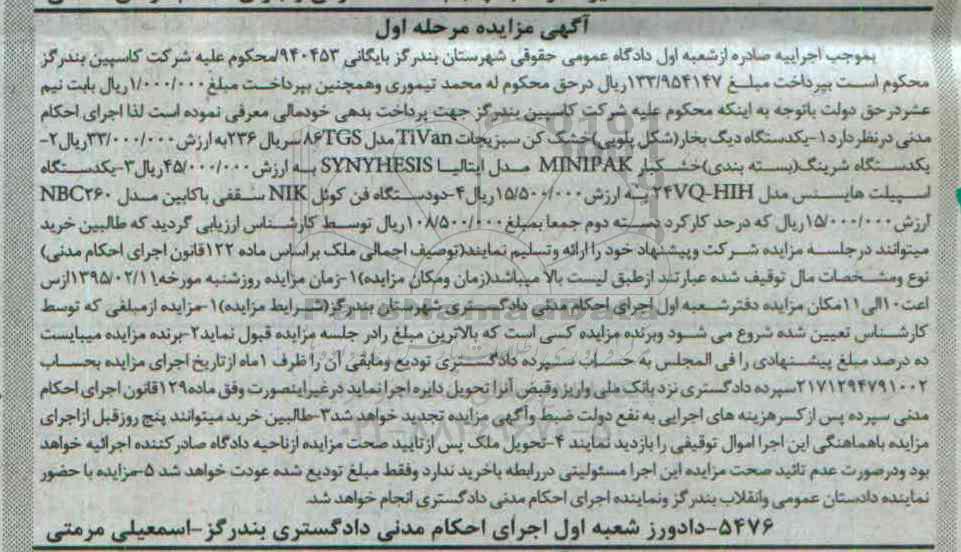 آگهی مزایده مرحله اول
بموجب اجراییه صادره ازشعبه اول دادگاه عمومی حقوقی شهرستان بندرگز بایگانی ۹۴۰۴۵۳/محکوم علیه شرکت کاسپین بندرگز
محکوم است بپرداخت مبلغ ۱۳۳/۹۵۴۱۴۷ریال درحق محکوم له محمد تیموری وهمچنین بپرداخت مبلغ ۱/۰۰۰/۰۰۰ریال بابت نیم
عشردرحق دولت باتوجه به اینکه محکوم علیه شرکت کاسپین بندرگز جهت پرداخت بدهی خودمالی معرفی نموده است لذا اجرای احکام
مدنی درنظر دارد۱-یکدستگاه دیگ بخار(شکل پلویی) خشک کن سبزیجات TiVan مدل ۸۶TGS سریال ۲۳۶به ارزش ۳۳/۰۰۰/۰۰۰ریال۲-
یکدستگاه شرینگ(بسته بندی)خشکبار MINIPAK مدل ایتالیا SYNYHESIS به ارزش ۴۵/۰۰۰/۰۰۰ریال۳-یکدستگاه
اسپیلت هایسنس مدل ۲۴VQ-HIH به ارزش ۱۵/۵۰۰/۰۰۰ریال۴-دودستگاه فن کوئل NIK سقفی باکابین مدل NBC۲۶۰
ارزش ۱۵/۰۰۰/۰۰۰ریال که درحد کارکرد دسته دوم جمعا بمبلغ ۱۰۸/۵۰۰/۰۰۰ریال توسط کارشناس ارزیابی گردید که طالبین خرید
میتوانند درجلسه مزایده شرکت وپیشنهاد خود را ارائه وتسلیم نمایند(توصیف اجمالی ملک براساس ماده ۱۲۲قانون اجرای احکام مدنی)
نوع ومشخصات مال توقیف شده عبارتند ازطبق لیست بالا میباشد(زمان ومکان مزایده)۱-زمان مزایده روزشنبه مورخه۱۳۹۵/۰۲/۱۱ازس
اعت۱۰الی۱۱مکان مزایده دفترشعبه اول اجرای احکام مدنی دادگستری شهرستان بندرگز(شرایط مزایده)۱-مزایده ازمبلغی که توسط
کارشناس تعیین شده شروع می شود وبرنده مزایده کسی است که بالاترین مبلغ رادر جلسه مزایده قبول نماید۲-برنده مزایده میبایست
ده درصد مبلغ پیشنهادی را فی المجلس به حساب سپرده دادگستری تودیع ومابقی آن را ظرف ۱ماه ازتاریخ اجرای مزایده بحساب
۲۱۷۱۲۹۴۷۹۱۰۰۲سپرده دادگستری نزد بانک ملی واریز وقبض آنرا تحویل دایره اجرا نماید درغیراینصورت وفق ماده۱۲۹قانون اجرای احکام
مدنی سپرده پس ازکسرهزینه های اجرایی به نفع دولت ضبط وآگهی مزایده تجدید خواهد شد۳-طالبین خرید میتوانند پنج روزقبل ازاجرای
مزایده باهماهنگی این اجرا اموال توقیفی را بازدید نمایند ۴-تحویل ملک پس ازتایید صحت مزایده ازناحیه دادگاه صادرکننده اجرائیه خواهد
بود ودرصورت عدم تائید صحت مزایده این اجرا مسئولیتی دررابطه باخرید ندارد وفقط مبلغ تودیع شده عودت خواهد شد ۵-مزایده با حضور
نماینده دادستان عمومی وانقلاب بندرگز ونماینده اجرای احکام مدنی دادگستری انجام خواهد شد.
۵۴۷۶-دادورز شعبه اول اجرای احکام مدنی دادگستری بندرگز-اسمعیلی مرمتی